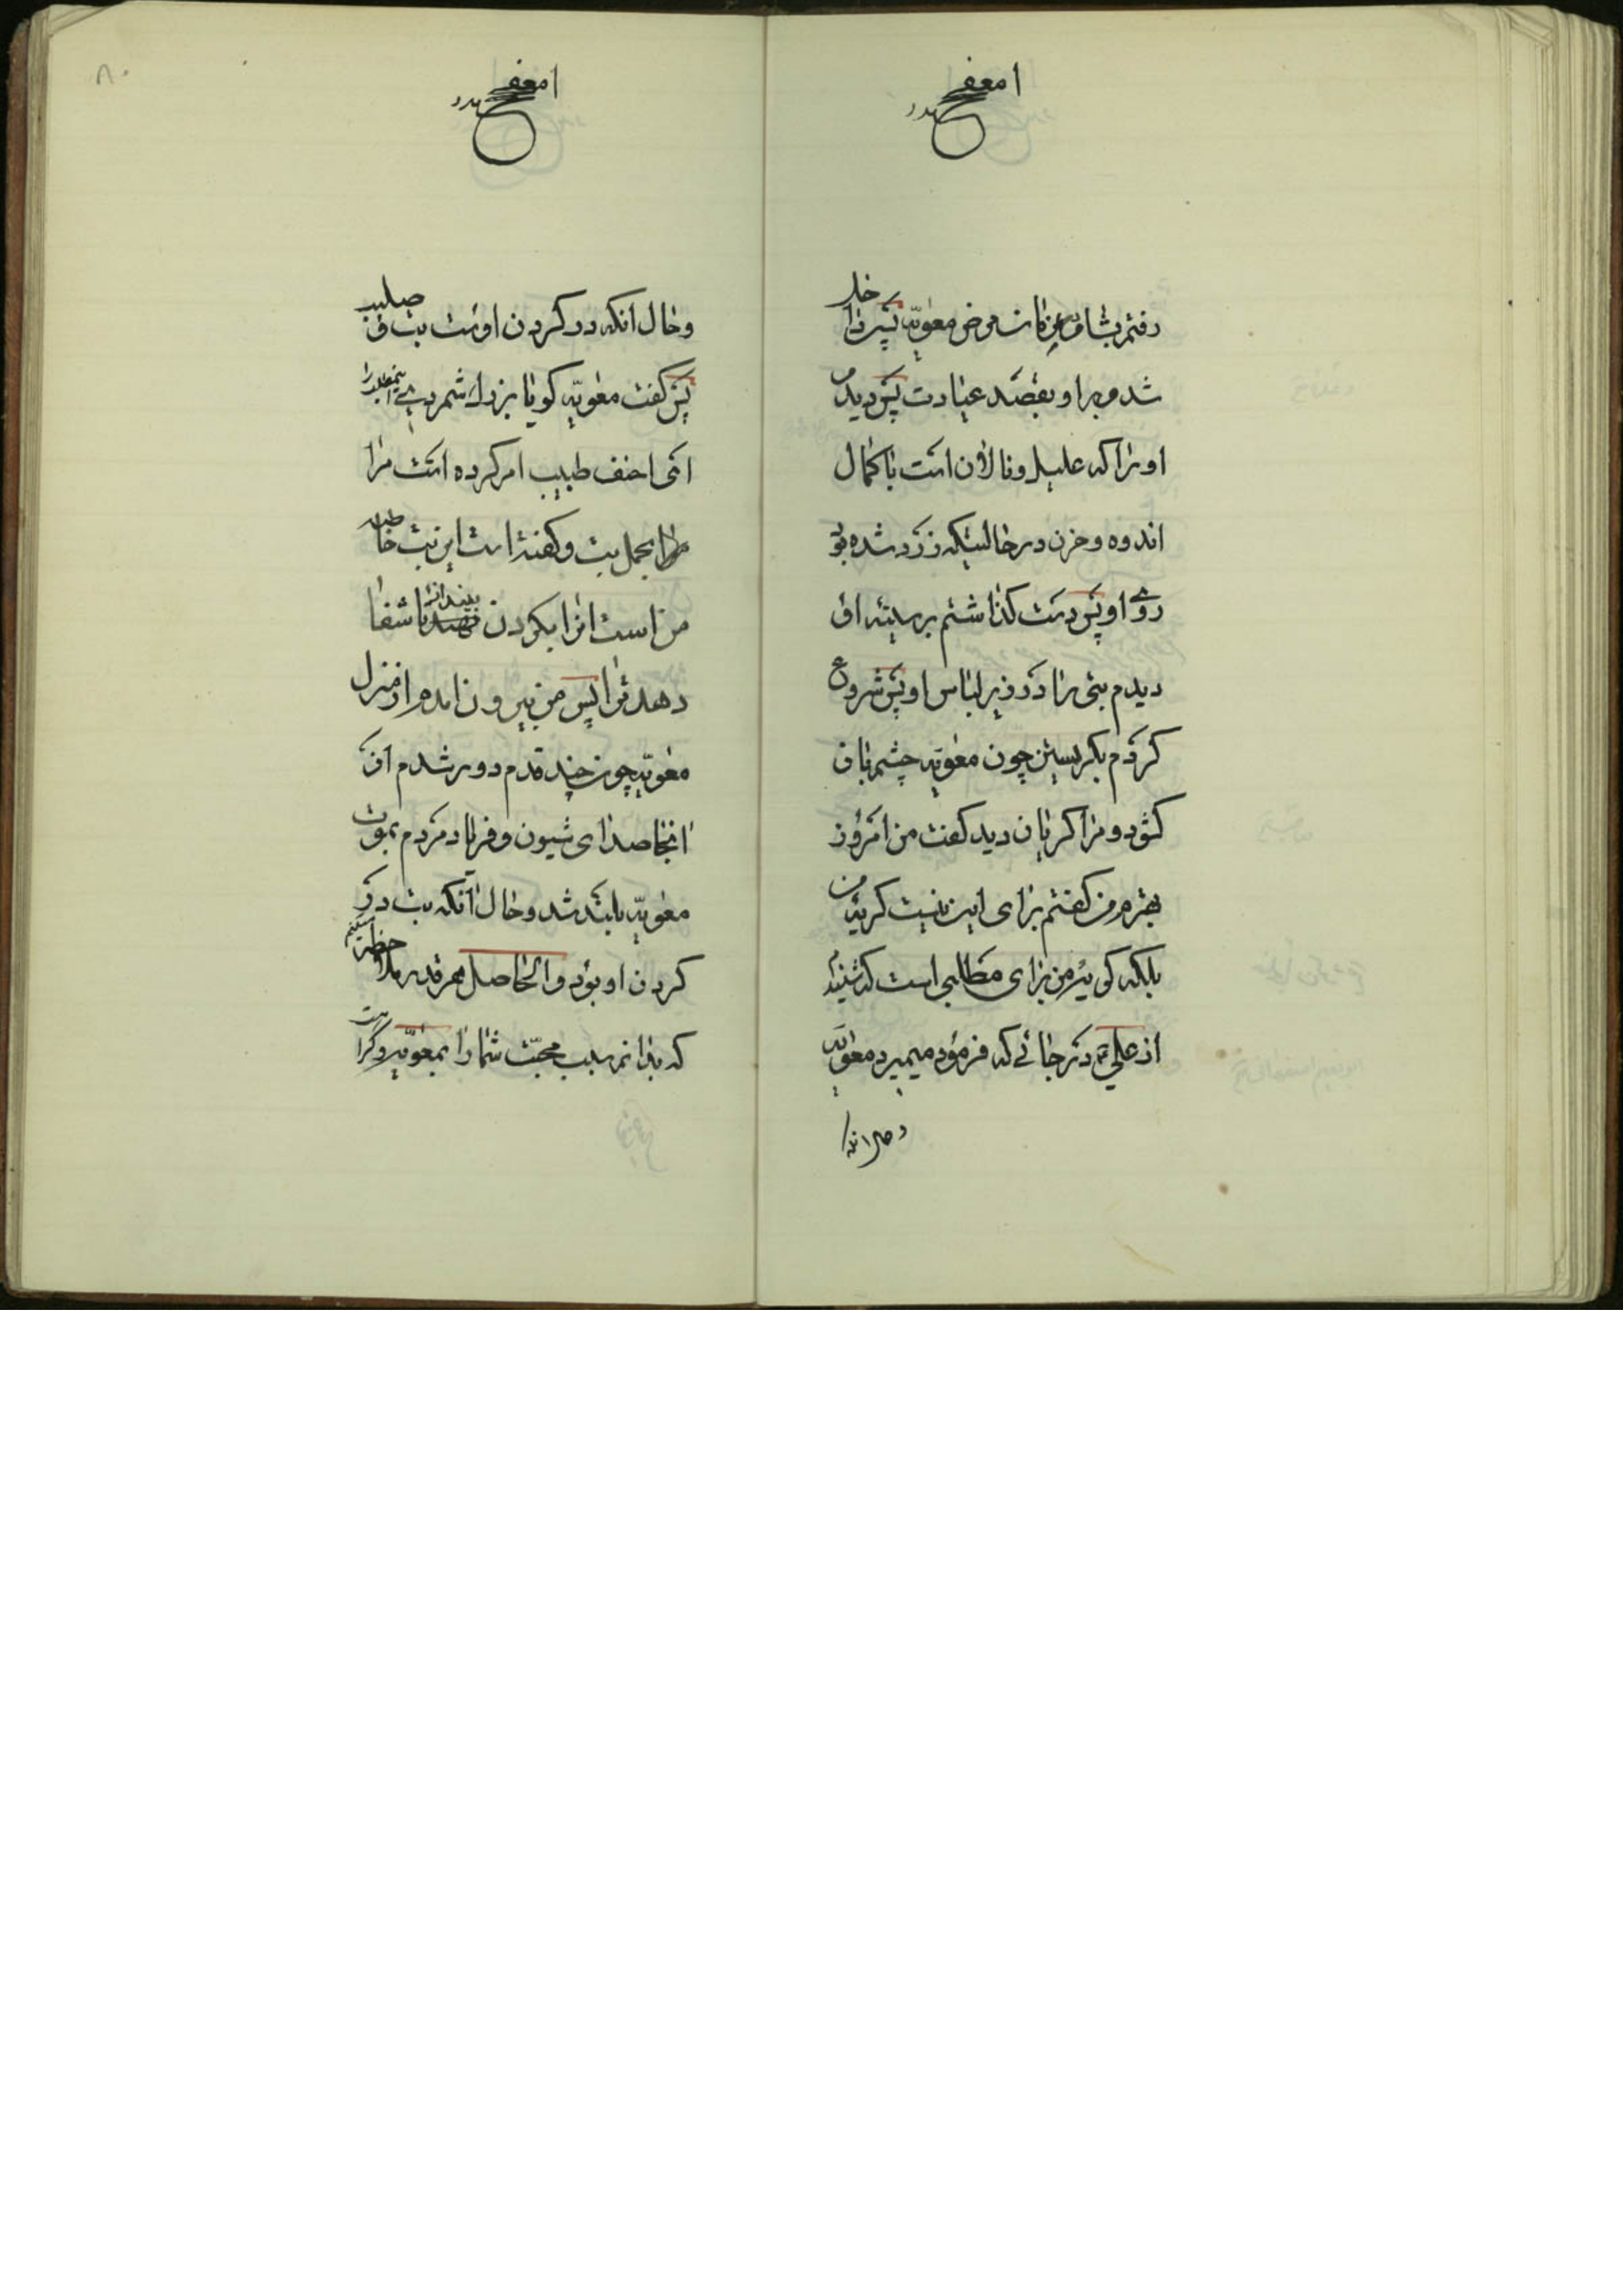 رفتم بشام در زمان مرض معویه پس داخل
شدم بر او بقصد عیادت پس دیدم
او را که علیل و نالان است با کمال
اندوه و حزن در حالتیکه زرد شده بود
روی او پس دست گذاشتم بر سینه او
دیدم بتی را در زیر لباس او پس شروع
کردم بگریستن چون معویه چشم باز
کشود و مرا گریان دید گفت من امروز
بهترم من گفتم برای این نیست گریه من
بلکه گریه من برای مطالبی است که شنیدم
از علی ع در جائی که فرمود میمیرد معویه
و حال انکه
۸۰
و حال انکه در گردن اوست بت و صلیب
پس گفت معویه گویا بزرگ شمردی اینمطلب را
ای احنف طبیب امر کرده است مرا
بحمل بت و گفته است این بت خاطر
من است انرا بگردن بینداز تا شفا
دهد ترا پس من بیرون امدم از منزل
معویه چون چند قدم دور شدم از
انجا صدای شیون و فریاد مردم بموت
معویه بلند شد و حال آنکه بت در
گردن او بود و الحاصل هر قدر ملاحظه میکنم
که بدانم سبب محبت شما را بمعویه